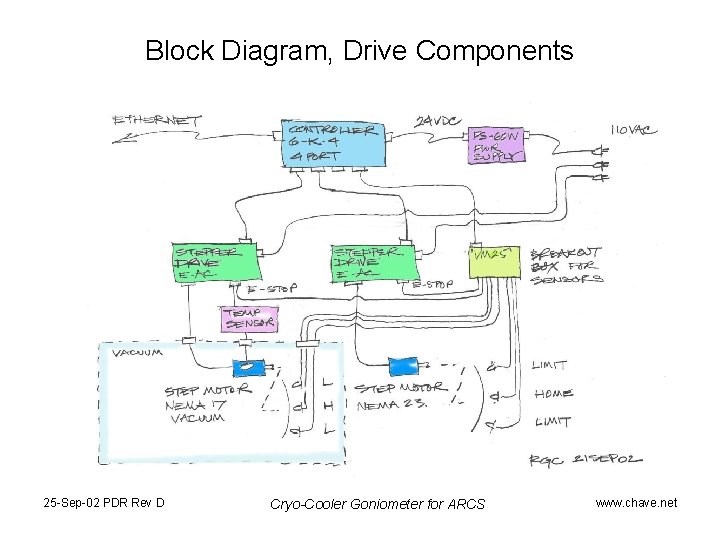 Block Diagram, Drive Components
ETHERNET
CONTROLLER
6-K-4
4 PORT
24VDC
PS-60W
PWR
SUPPLY
110VAC
STEPPER
DRIVE
E-AC
STEPPER
DRIVE
E-AC
"VM25"
BREAKOUT
BOX FOR
SENSORS
E-STOP
E-STOP
TEMP
SENSOR
VACUUM
STEP MOTOR
NEMA 17
VACUUM
L
H
L
STEP MOTOR
NEMA 23
LIMIT
HOME
LIMIT
RGC 21SEP02
25-Sep-02 PDR Rev D
Cryo-Cooler Goniometer for ARCS
www.chave.net